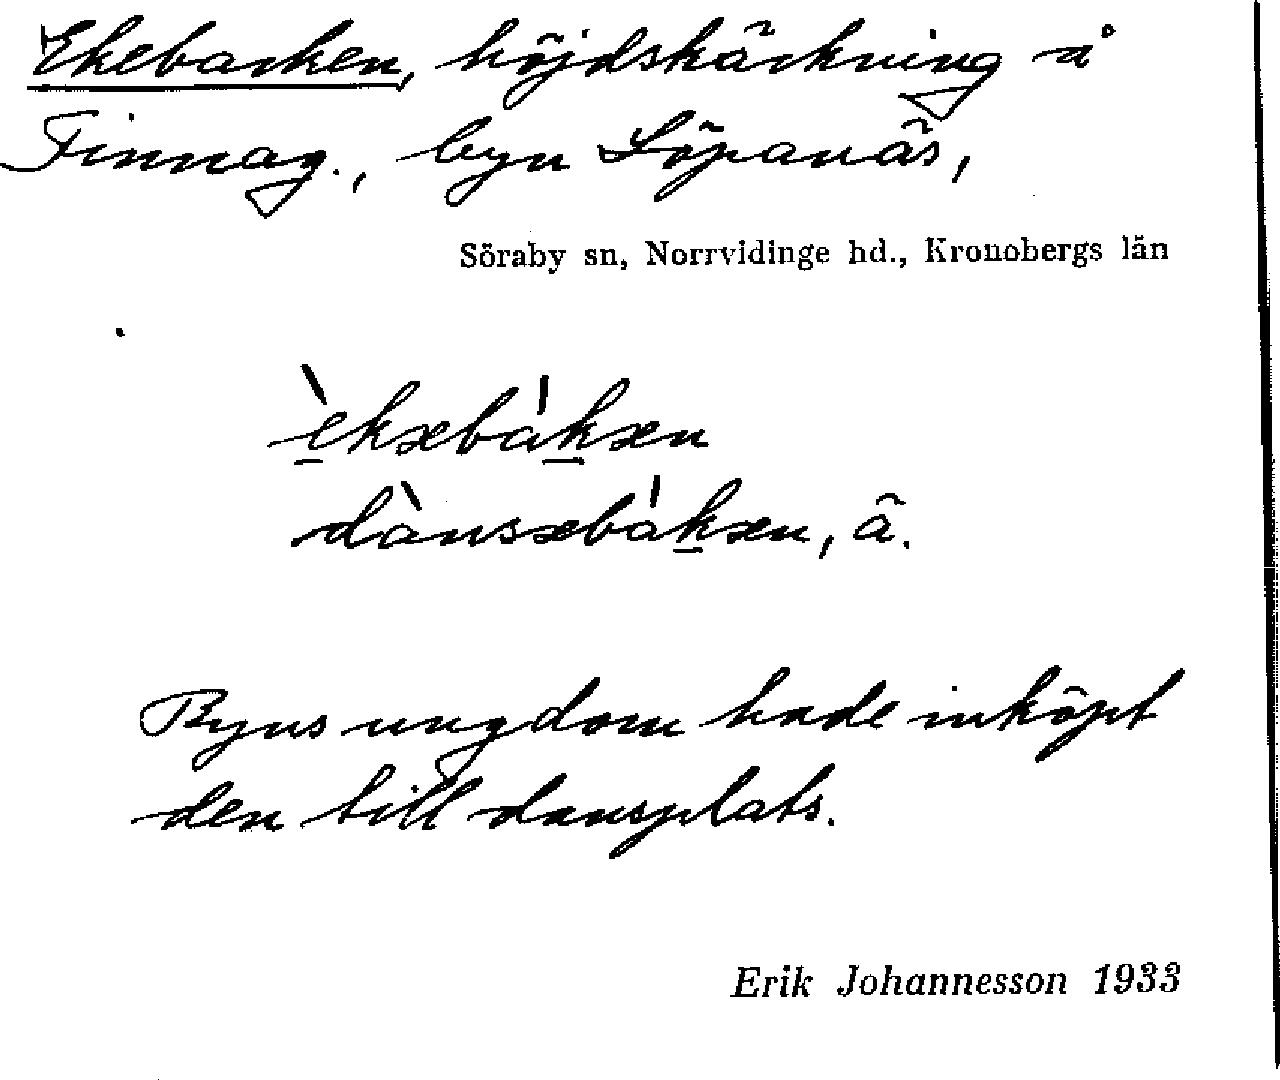 Ekebacken, höjdsträckning å
Finnag., byn Löpanäs,
Söraby sn, Norrvidinge hd., Kronobergs län
èkəbàkən
dànsəbàkən, ä.
Byns ungdom hade inköpt
den till dansplats.
Erik Johannesson 1933